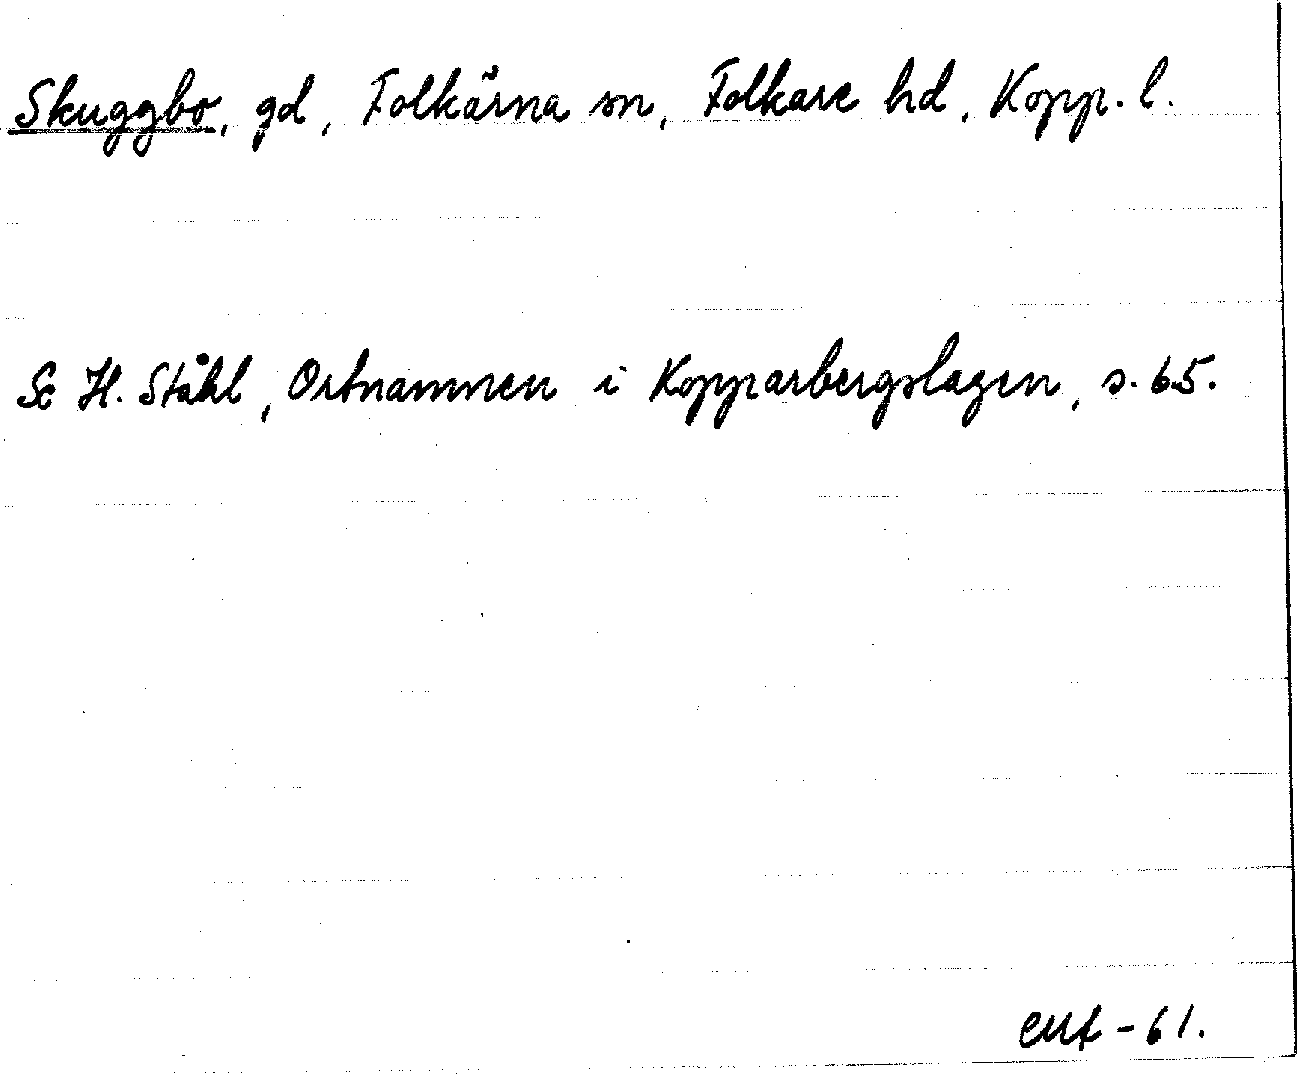 Skuggbo, gd, Folkärna sn, Folkare hd, Kopp. l.
Se H. Ståhl, Ortnamnen i Kopparbergslagen, s. 65.
-61.